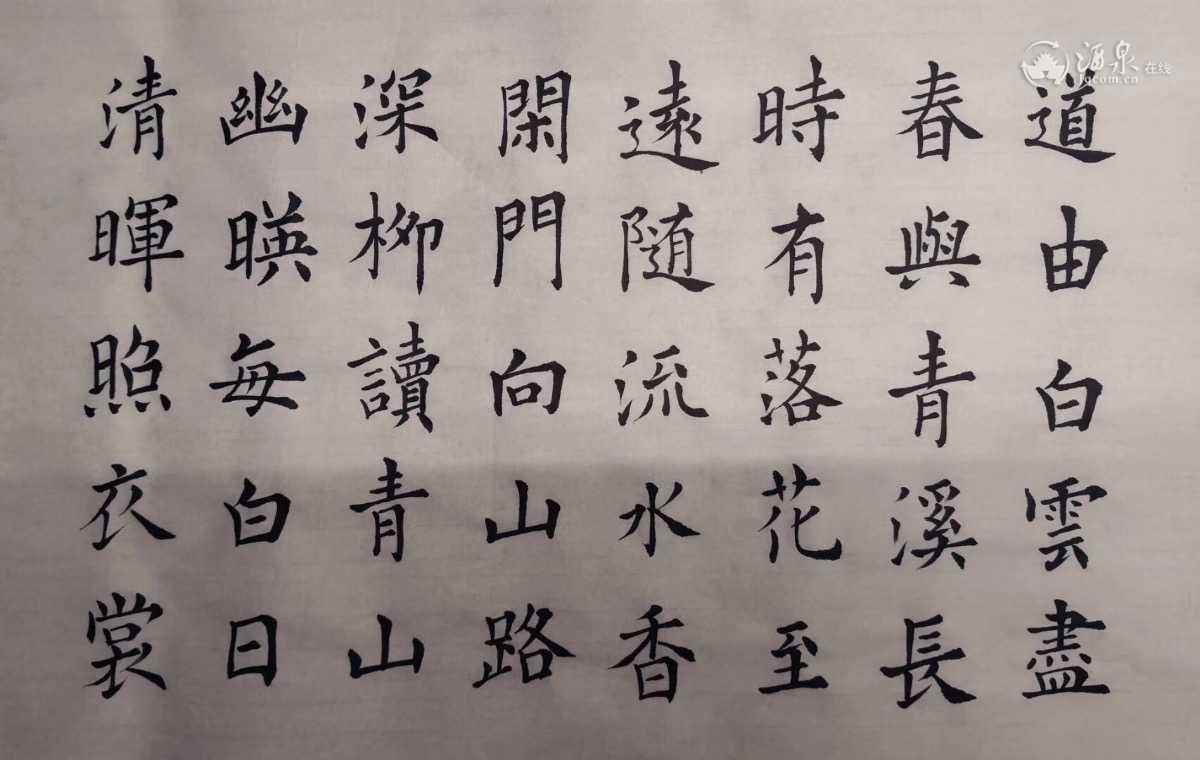 道由白雲盡
春與青溪長
時有落花至
遠隨流水香
閑門向山路
深柳讀青山
幽暎每白日
清暉照衣裳
酒泉在线
jqcom.cn